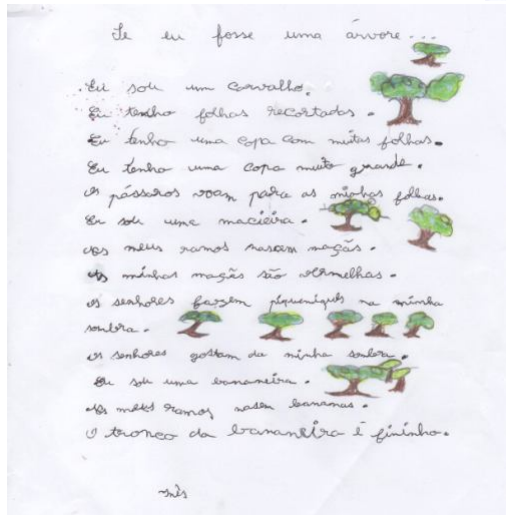 Se eu fosse uma árvore...
Eu sou um carvalho.
Eu tenho folhas recortadas.
Eu tenho uma copa com muitas folhas.
Eu tenho uma copa muito grande.
Os pássaros voam para as minhas folhas.
Eu sou uma macieira.
Nos meus ramos nascem maçãs.
As minhas maçãs são vermelhas.
Os senhores fazem piqueniques na minha
sombra.
Os senhores gostam da minha sombra.
Eu sou uma bananeira.
Nos meus ramos nasem bananas.
O tronco da bananeira é fininho.
Inês